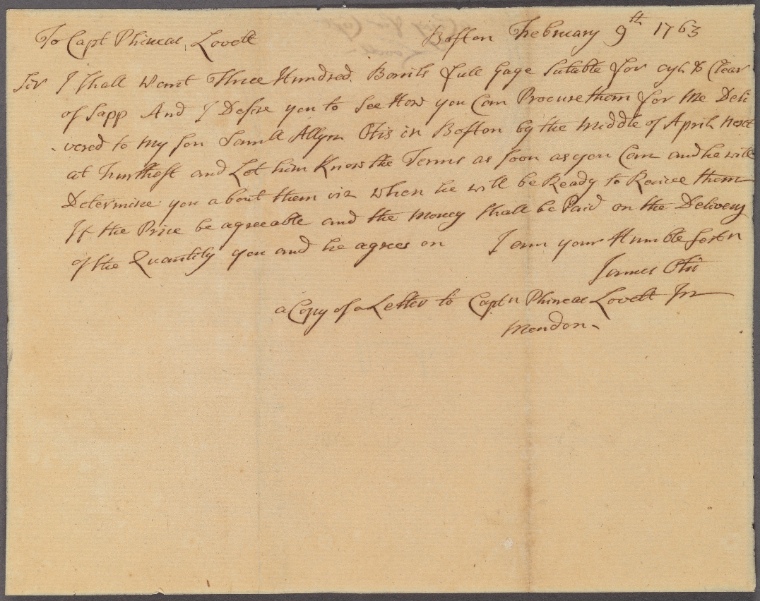 To Capt Phineas Lovett Boston February 9th 1763
Sir I Shall Want Three Hundred Barrils full Gage Sutable for Cyd & Clear
of Sapp And I Desire you to See How you Can Procure them for Me Deli
vered to my Son Samll Allyn Otis in Boston by the middle of April next
at furthest and Let him Know the Terms as Soon as you Can and he will
Determine you about them viz when he will be Ready to Receive them
If the Price be agreeable and the Money Shall be Paid on the Delivery
of the Quantity you and he agrees on I am your Humble Servn
James Otis
a Copy of a Letter to Captn Phineas Lovett Jnr
Mendon